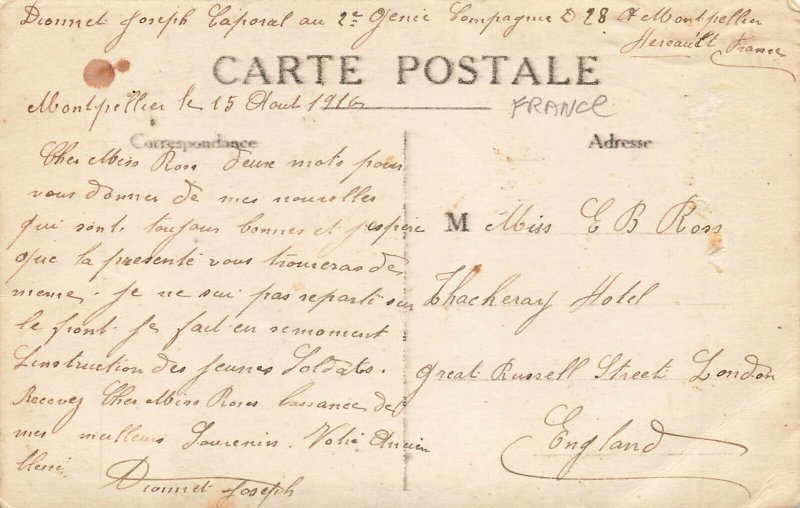 Dionnet Joseph Caporal au 2e Genie Compagnie D 28 A Montpellier
Hereault, France
CARTE POSTALE
Montpellier le 15 Aout 1916
FRANCE
Correspondance
Cher Miss Ross deux mots pour
vous donner de mes nouvelles
qui sont toujour bonnes et jespère
que la presente vous trouveras de
meme. Je ne sui pas reparti sur
le front. Je fait en semoment
Linstruction des jeunes Soldats.
Recevez Cher Miss Roses lassance de
mes meilleurs Souvenirs. Votre Ancien
Blessé
Dionnet Joseph
Adresse
M Miss E B Ross
Thackeray Hotel
Great Russell Street London
England